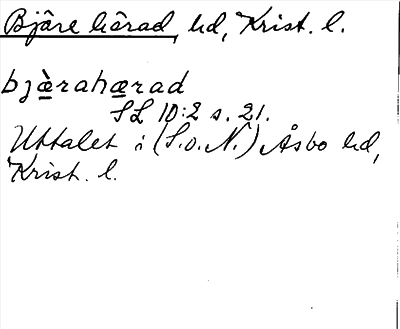 Bjäre härad, hd, Krist. l.
bjæ̀rahærad
SL 10:2 s. 21.
Uttalet i (S.o.N.) Åsbo hd,
Krist. l.